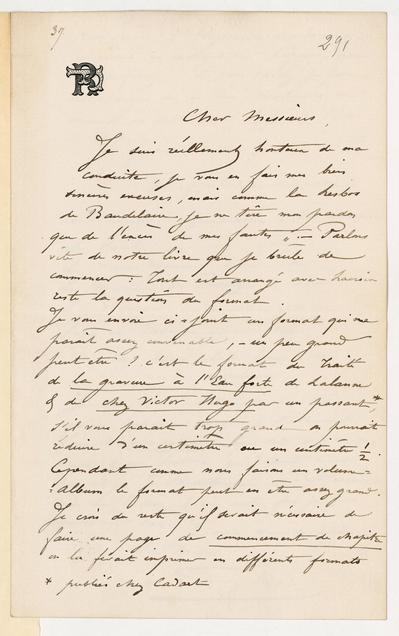 39
291
R
Cher Messieurs,
Je suis réellement honteux de ma
conduite, je vous en fais mes biens
sincères excuses, mais comme la Lesbos
de Baudelaire "je ne tire mon pardon
que de l'excès de mes fautes". — Parlons
vite de notre livre que je brûle de
commencer : Tout est arrangé avec
reste la question du format.
Je vous envoie ci-joint un format qui me
paraît assez convenable, — un peu grand
peut être ? c'est le format du Traité
de la gravure à l'Eau forte de Lalanne
& de chez Victor Hugo par un passant*,
s'il vous parait trop grand on pourrait
réduire d'un centimètre ou un centimètre 1/2.
Cependant comme nous faisons un volume=
=album le format peut en être assez grand.
Je crois du reste qu'il serait nécessaire de
faire une page de commencement de chapitre
on la ferait imprimer en différents formats
* publiés chez Cadart